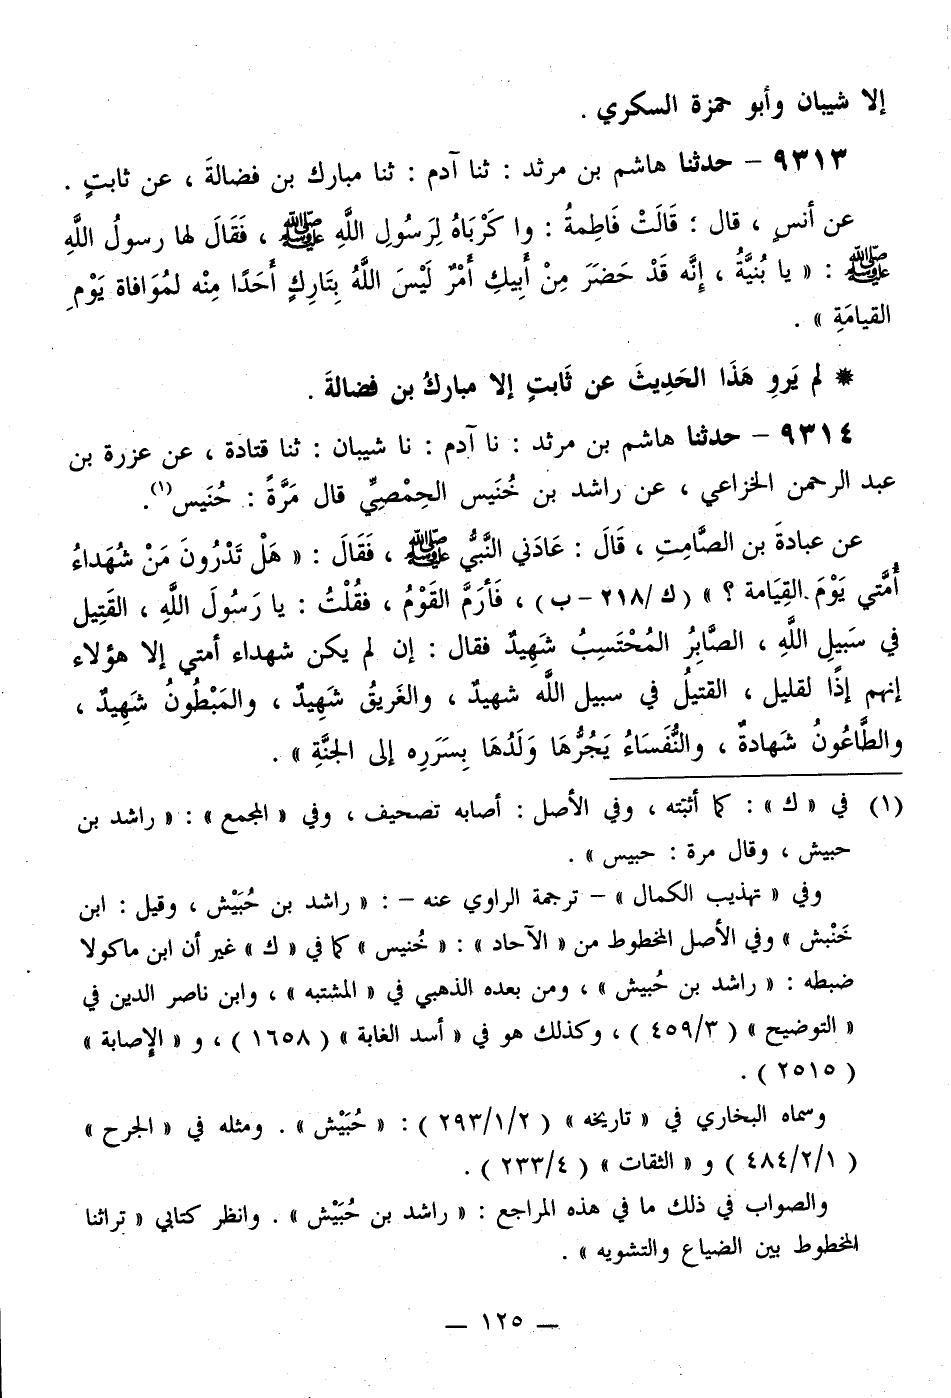 إلا شيبان وأبو حمزة السكري .
٩٣١٣ – حدثنا هاشم بن مرثد : ثنا آدم : ثنا مبارك بن فضالةَ ، عن ثابتٍ .
عن أنسٍ ، قال : قَالَتْ فَاطِمةُ : وا كَرْبَاهُ لِرَسُولِ اللَّهِ ﷺ ، فَقَالَ لها رسولُ اللَّهِ
ﷺ : « يا بُنيَّةُ ، إنَّه قَدْ حَضَرَ مِنْ أَبِيكِ أَمْرٌ لَيْسَ اللَّهُ بِتَارِكٍ أَحَدًا مِنْه لمُوَافاة يَوْمِ
القيامَةِ » .
* لم يَروِ هَذَا الحَدِيثَ عن ثَابتٍ إلا مباركُ بن فضالةَ .
٩٣١٤ – حدثنا هاشم بن مرثد : نا آدم : نا شيبان : ثنا قتادة ، عن عزرة بن
عبد الرحمن الخزاعي ، عن راشد بن خُنَيس الحِمْصِيِّ قال مَرَّةً : حُنَيس(١).
عن عبادةَ بن الصَّامِتِ ، قَالَ : عَادَني النَّبيُّ ﷺ ، فَقَالَ : « هَلْ تَدْرُونَ مَنْ شُهَداءُ
أُمَّتي يَوْمَ القِيَامة ؟ » ( ك /٢١٨ – ب ) ، فَأرَمَّ القَوْمُ ، فقُلْتُ : يا رَسُولَ اللَّهِ ، القَتِيل
في سَبِيلِ اللَّهِ ، الصَّابِرُ المُحْتَسِبُ شَهِيدٌ فقال : إن لم يكن شهداء أمتي إلا هؤلاء
إنهم إذًا لقليل ، القتيلُ في سبيل اللَّه شهيدٌ ، والغَريقُ شَهِيدٌ ، والمَبْطُونُ شَهِيدٌ ،
والطَّاعُونُ شَهادةٌ ، والنُّفَسَاءُ يَجُرُّهَا وَلَدُهَا بِسَرَرِه إلى الجنَّةِ » .
(١) في « ك » : كما أثبته ، وفي الأصل : أصابه تصحيف ، وفي « المجمع » : « راشد بن
حبيش ، وقال مرة : حبيس » .
وفي « تهذيب الكمال » – ترجمة الراوي عنه – : « راشد بن حُبَيْش ، وقيل : ابن
خَنْبش » وفي الأصل المخطوط من « الآحاد » : « خُنيس » كما في « ك » غير أن ابن ماكولا
ضبطه : « راشد بن حُبيش » ، ومن بعده الذهبي في « المشتبه » ، وابن ناصر الدين في
« التوضيح » ( ٤٥٩/٣ ) ، وكذلك هو في « أسد الغابة » ( ١٦٥٨ ) ، و « الإصابة »
( ٢٥١٥ ) .
وسماه البخاري في « تاريخه » ( ٢٩٣/١/٢ ) : « حُبَيْش » . ومثله في « الجرح »
( ٤٨٤/٢/١ ) و « الثقات » ( ٢٣٣/٤ ) .
والصواب في ذلك ما في هذه المراجع : « راشد بن حُبَيْش » . وانظر كتابي « تراثنا
المخطوط بين الضياع والتشويه » .
– ١٢٥ –